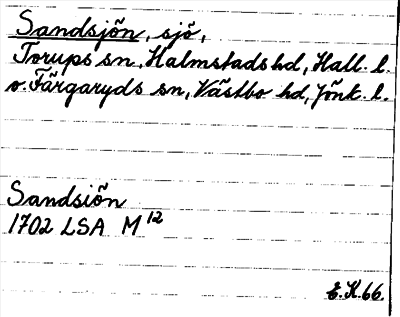 Sandsjön, sjö,
Torups sn, Halmstads hd, Hall. l.
o. Färgaryds sn, Västbo hd, Jönk. l.
Sandsiön
1702 LSA M 12
E.K.66.